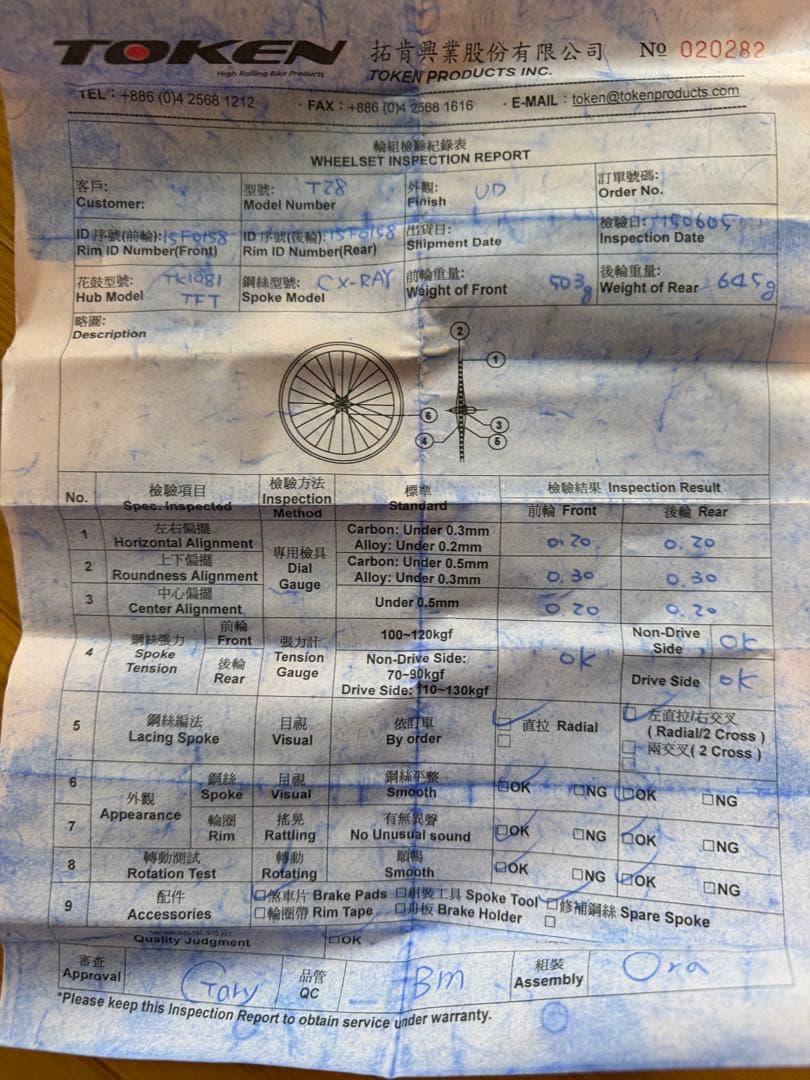 TOKEN
High Rolling Bike Products
拓肯興業股份有限公司 No 020282
TOKEN PRODUCTS INC.
TEL：+886 (0)4 2568 1212 ．FAX：+886 (0)4 2568 1616 ．E-MAIL：token@tokenproducts.com
輪組檢驗紀錄表
WHEELSET INSPECTION REPORT
客戶: 型號: T28 外觀: UD 訂單號碼:
Customer: Model Number Finish Order No.
ID 序號(前輪): 15F0158 ID 序號(後輪): 15F0158 出貨日: 檢驗日: 150605
Rim ID Number(Front) Rim ID Number(Rear) Shipment Date Inspection Date
花鼓型號: TK1081 鋼絲型號: CX-RAY 前輪重量: 503g 後輪重量: 645g
Hub Model TFT Spoke Model Weight of Front Weight of Rear
略圖:
Description
2
1
6
3
4 5
No. 檢驗項目 檢驗方法 標準 檢驗結果 Inspection Result
Spec. Inspected Inspection Method Standard 前輪 Front 後輪 Rear
1 左右偏擺 Horizontal Alignment 專用檢具 Dial Gauge Carbon: Under 0.3mm Alloy: Under 0.2mm 0.20 0.20
2 上下偏擺 Roundness Alignment Carbon: Under 0.5mm Alloy: Under 0.3mm 0.30 0.30
3 中心偏擺 Center Alignment Under 0.5mm 0.20 0.20
4 鋼絲張力 Spoke Tension 前輪 Front 張力計 Tension Gauge 100~120kgf OK Non-Drive Side OK
後輪 Rear Non-Drive Side: 70~90kgf Drive Side: 110~130kgf Drive Side OK
5 鋼絲編法 Lacing Spoke 目視 Visual 依訂單 By order 直拉 Radial 左直拉/右交叉 ( Radial/2 Cross )
兩交叉( 2 Cross )
6 外觀 Appearance 鋼絲 Spoke 目視 Visual 鋼絲平整 Smooth □OK □NG □OK □NG
7 輪圈 Rim 搖晃 Rattling 有無異聲 No Unusual sound □OK □NG □OK □NG
8 轉動測試 Rotation Test 轉動 Rotating 順暢 Smooth □OK □NG □OK □NG
9 配件 □煞車片 Brake Pads □組裝工具 Spoke Tool □修補鋼絲 Spare Spoke
Accessories □輪圈帶 Rim Tape Brake Holder □
Quality Judgment □OK
審查 Approval Gary 品管 QC BM 組裝 Assembly Ora
*Please keep this Inspection Report to obtain service under warranty.